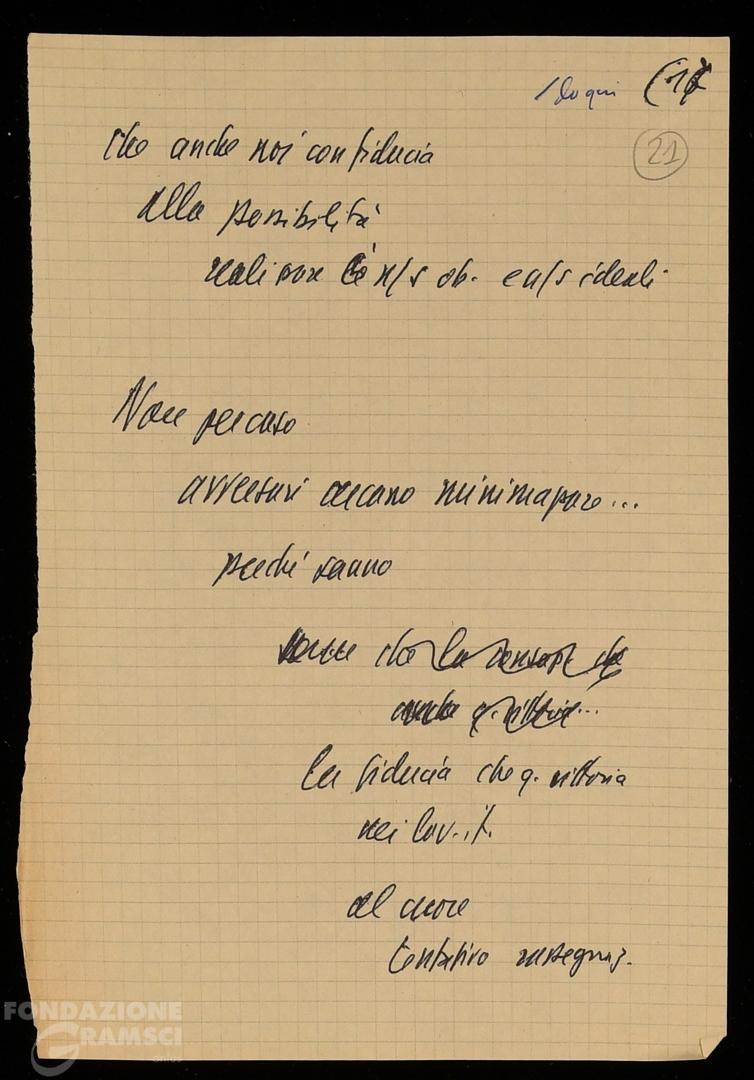 da qui (17
21
che anche noi con fiducia
alla possibilità
realizzare n/s ob. e n/s ideali
Non per caso
avversari cercano minimizzare...
perché sanno
che la
anche q. vittoria...
la fiducia che q. vittoria
nei lav. it.
al cuore
tentativo rassegnaz.
FONDAZIONE
GRAMSCI
onlus